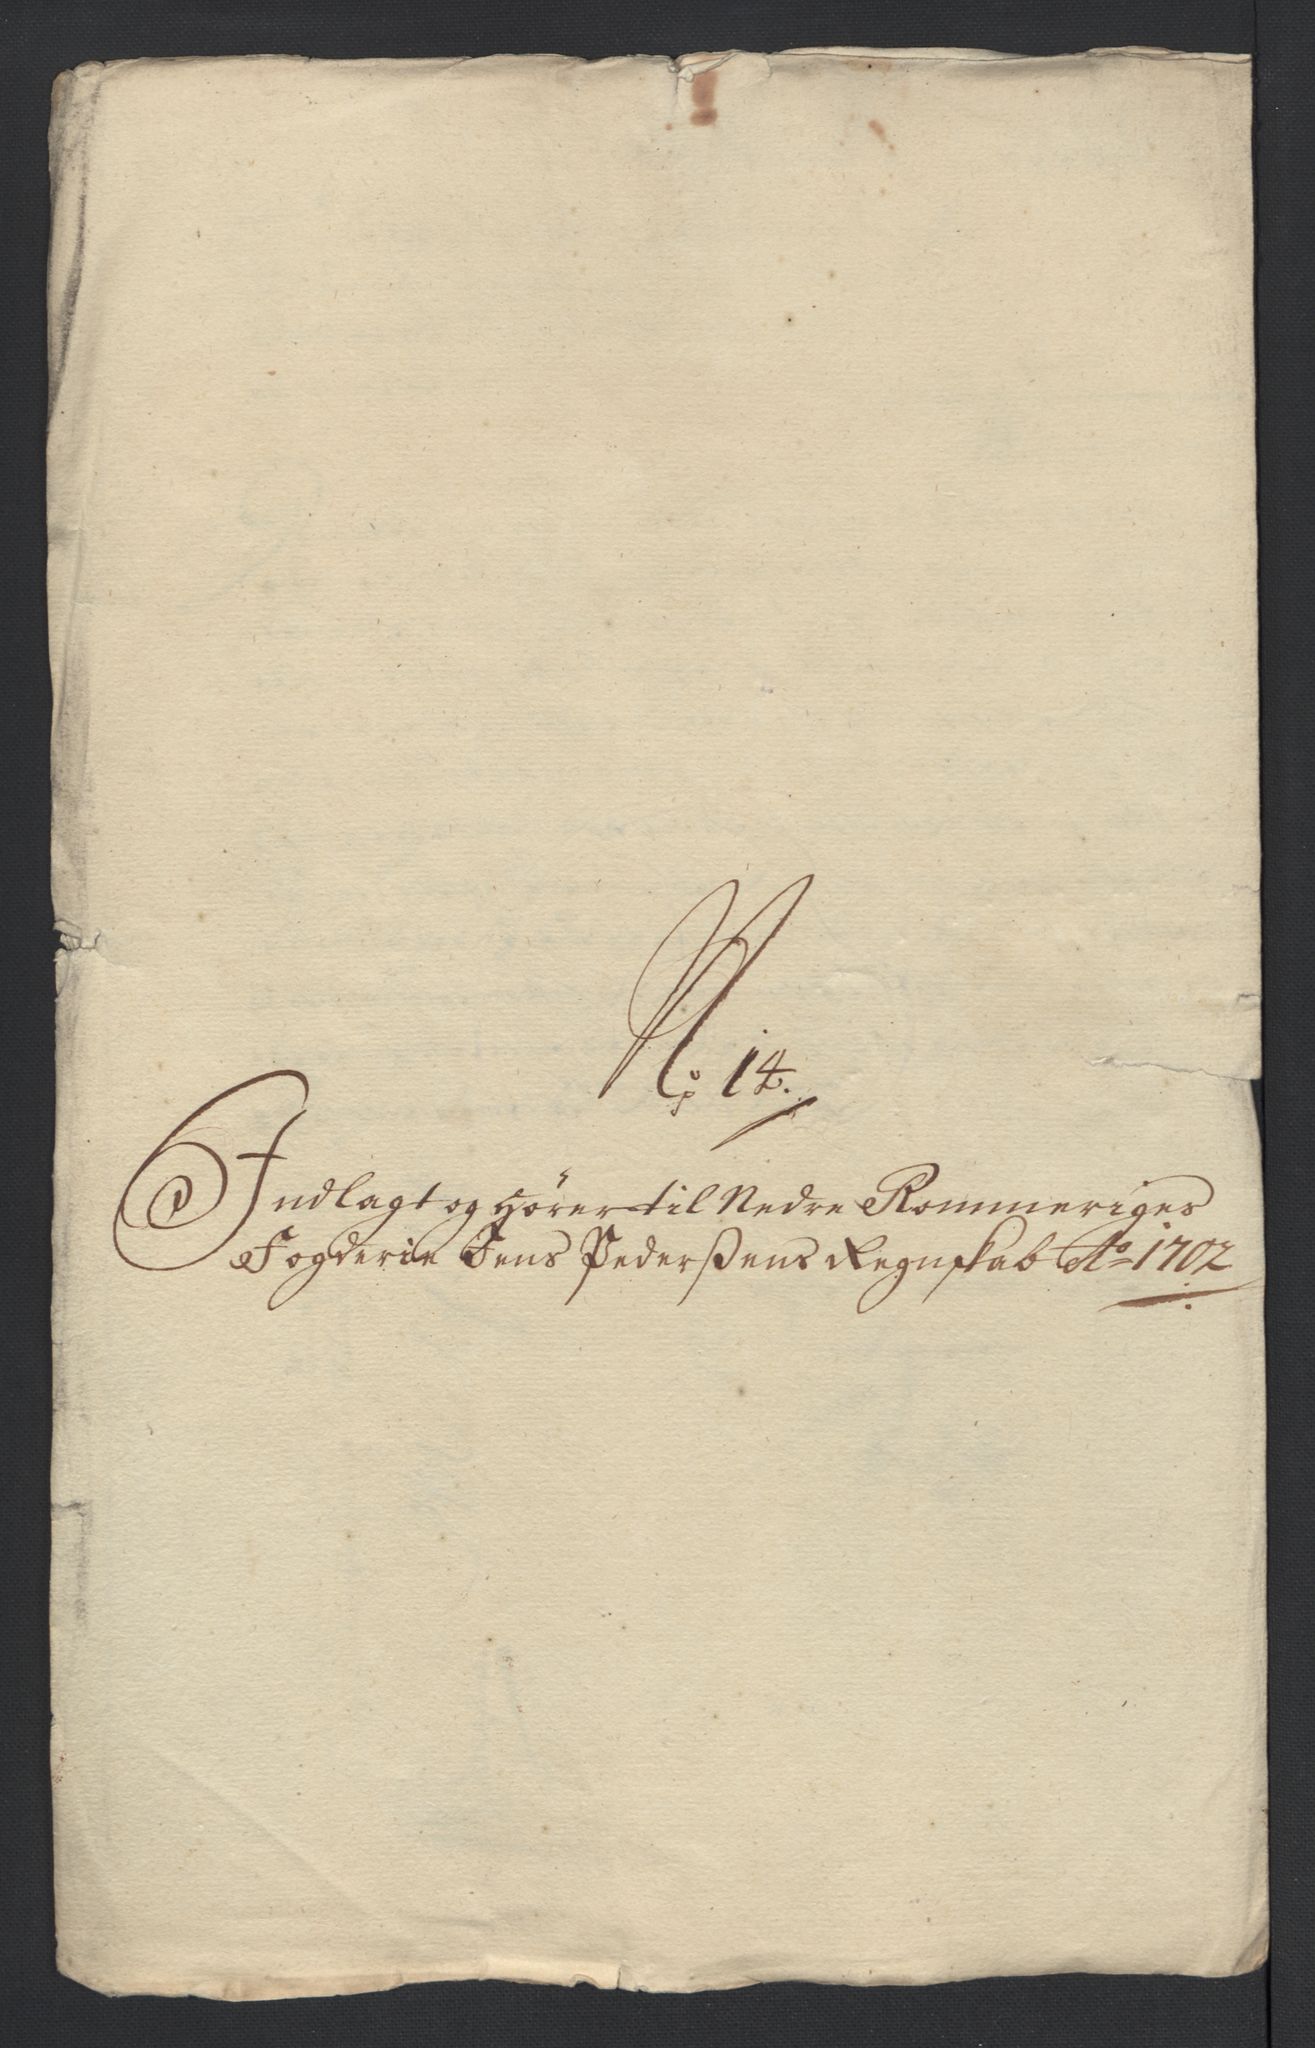 No 14.
Indlagt og hører til Nedre Rommeriges
Fogderie Jens Pederßens Regnskab Ao 1702